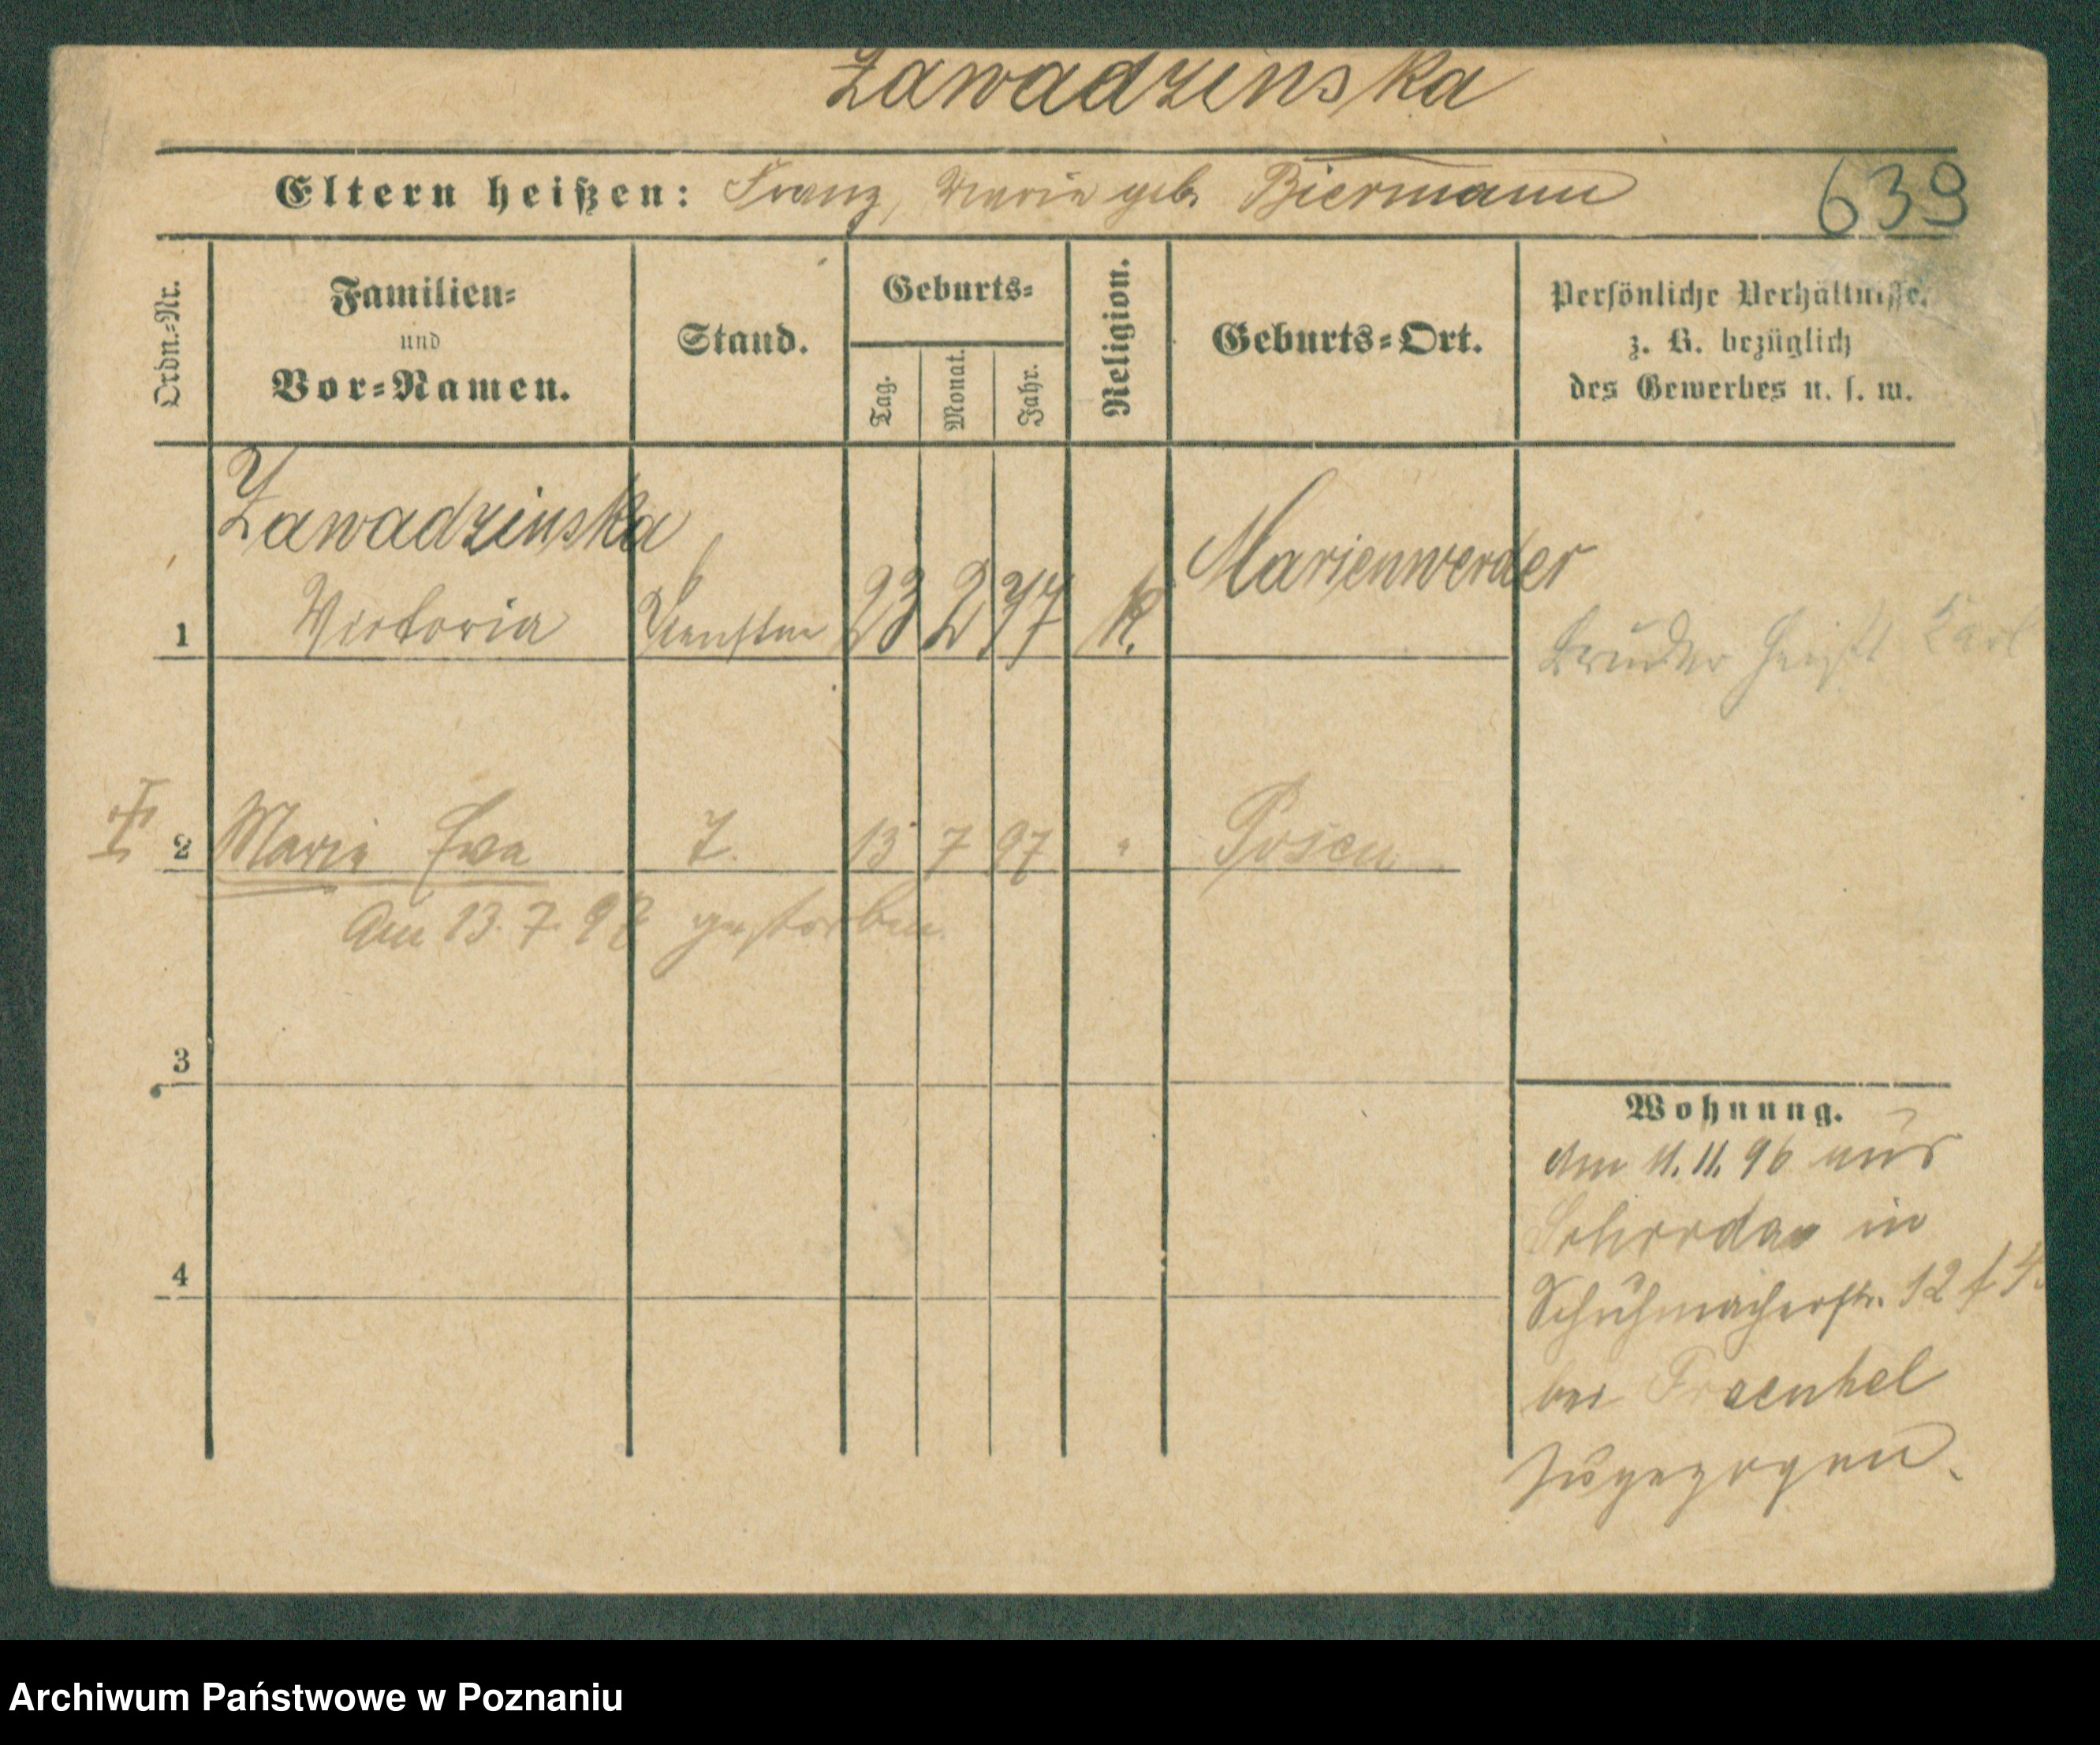 Zawadzinska
Eltern heißen: Franz, Maria geb. Biermann
639
Ordn.-Nr.
Familien-
und
Vor-Namen.
Stand.
Geburts-
Tag.
Monat.
Jahr.
Religion.
Geburts-Ort.
Persönliche Verhältnisse,
z. B. bezüglich
des Gewerbes u. s. w.
Zawadzinska
Marienwerder
1 Victoria 23 2 77 K.
Bruder heißt Karl
2 Marie Eva T. 13 7 97 " Posen
Am 13. 7. 97 gestorben.
3
Wohnung.
Am 11. 11. 96 aus
in
4
Schuhmacherstr. 12
bei Fraenkel
zugezogen.
Archiwum Państwowe w Poznaniu